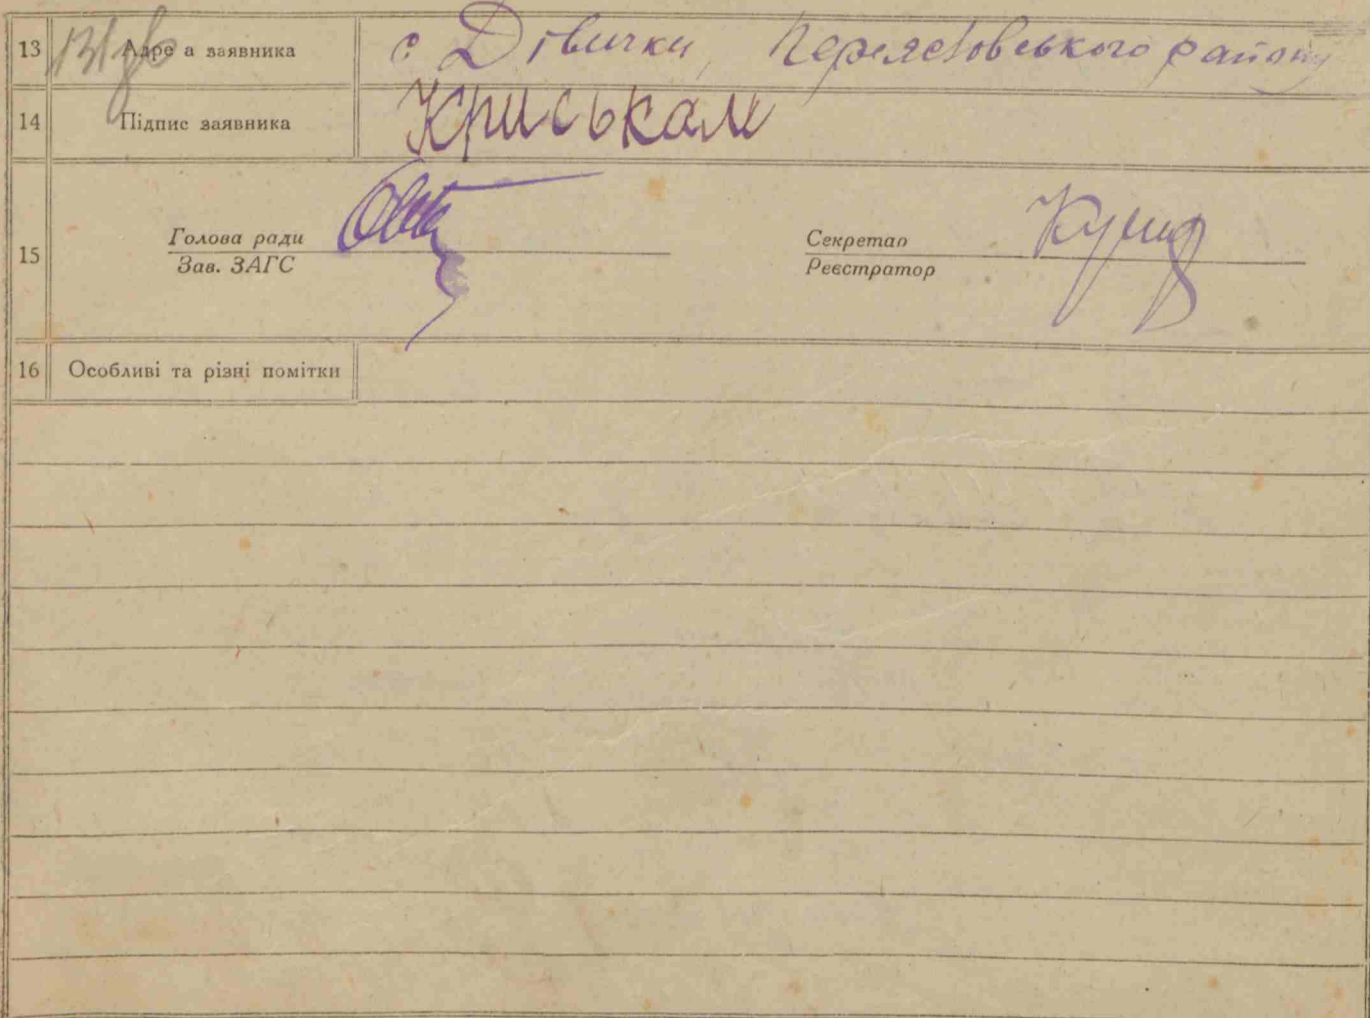 13 131зв Адре а заявника с Дівички, Переяславського району
14 Підпис заявника Криськам
15 Голова ради Секретар
Зав. ЗАГС Реєстратор
16 Особливі та різні помітки